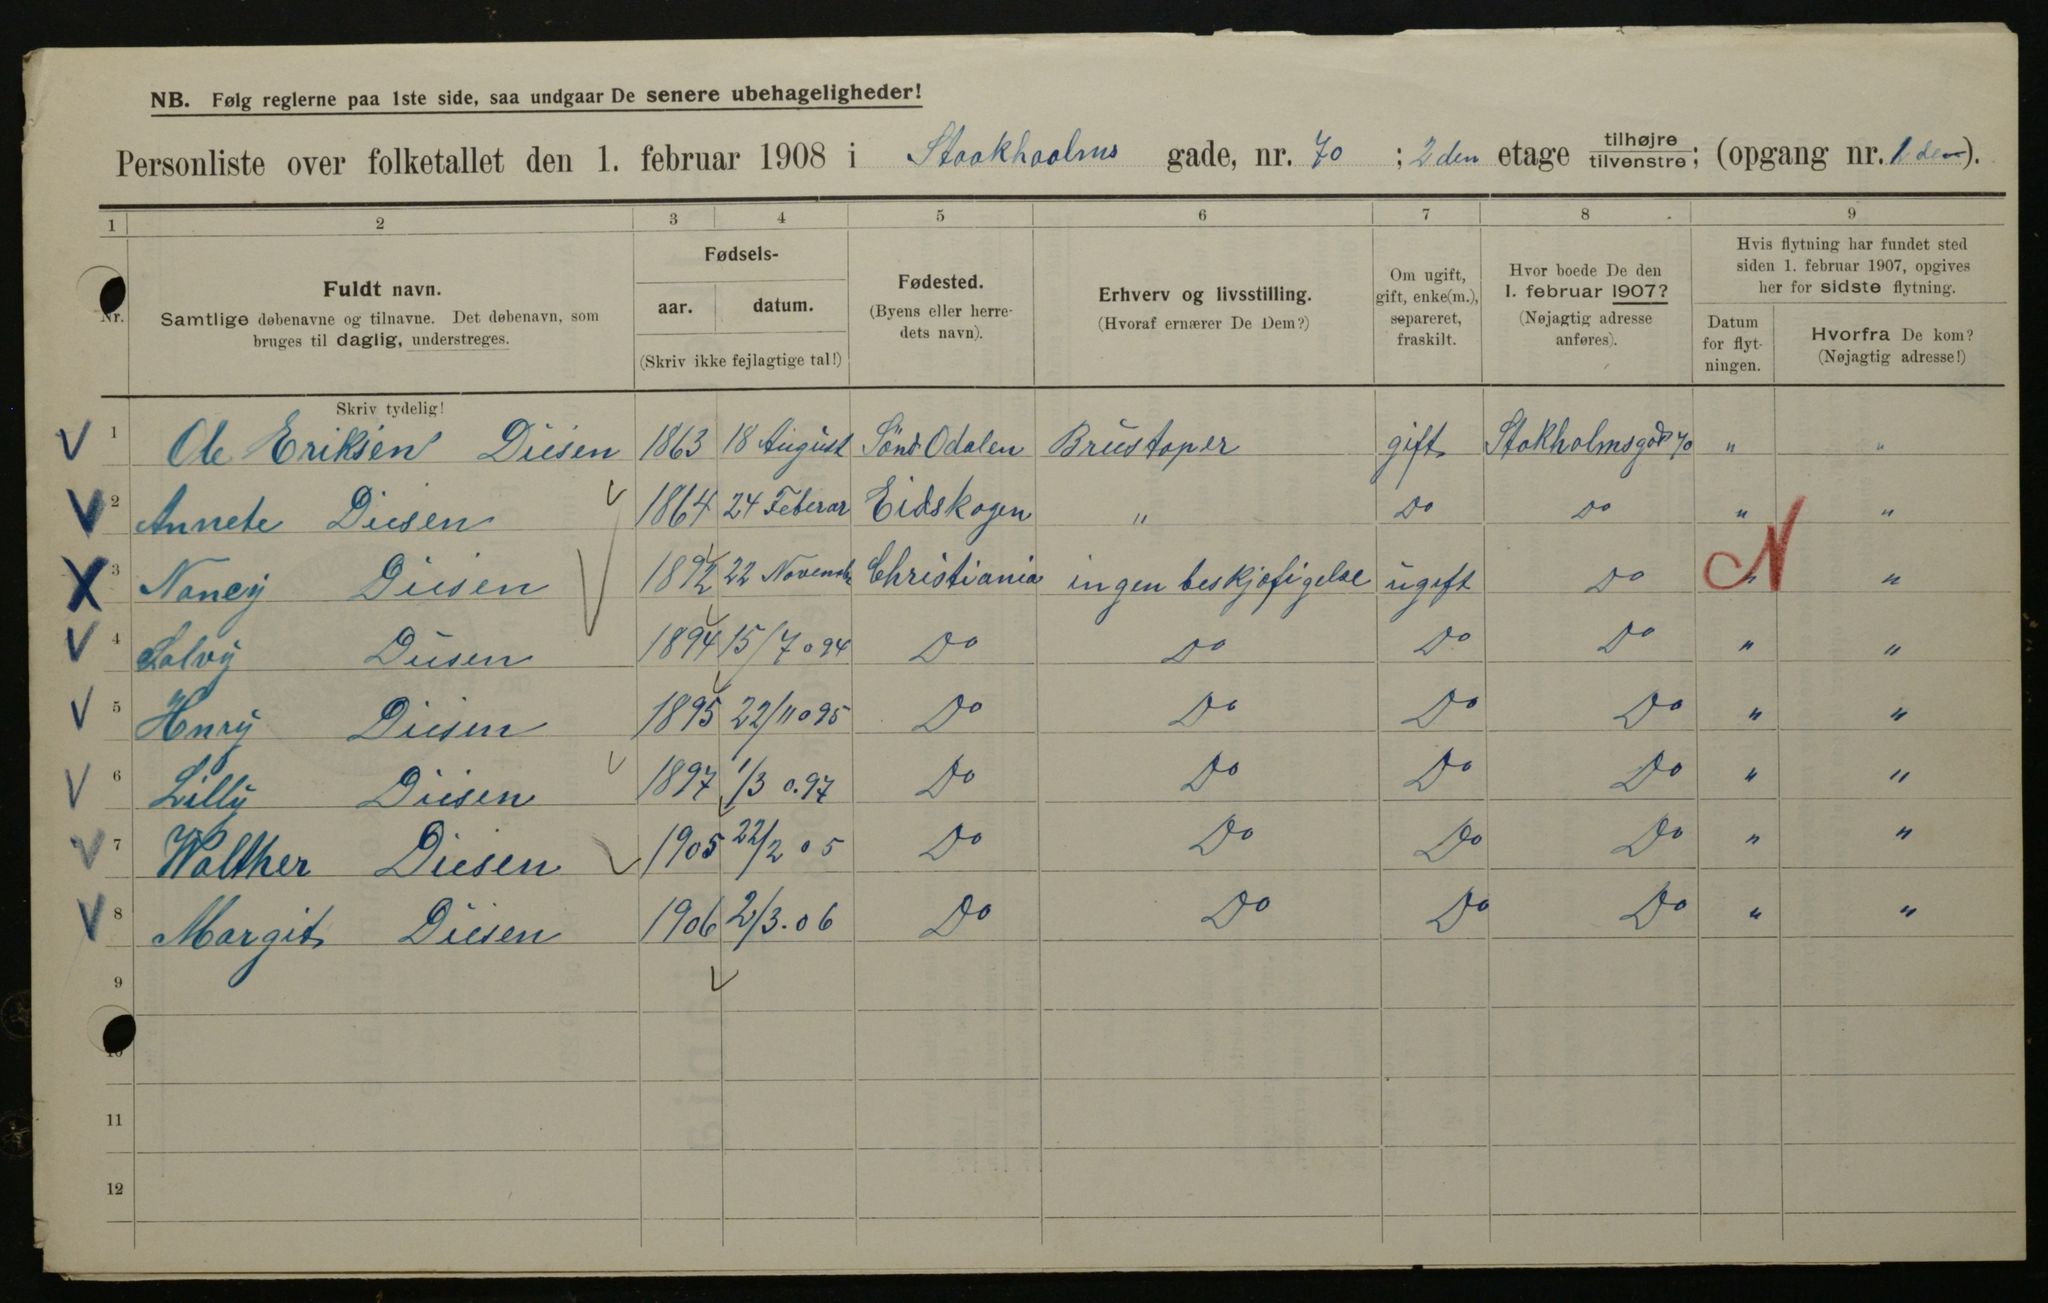 NB. Følg reglerne paa 1ste side, saa undgaar De senere ubehageligheder!
Personliste over folketallet den 1. februar 1908 i Stockhoolms gade, nr. 70 ; 2 den etage tilhøjre tilvenstre; (opgang nr. 1 den).
1 2 3 4 5 6 7 8 9
Nr.
Fuldt navn.
Samtlige døbenavne og tilnavne. Det døbenavn, som
bruges til daglig, understreges.
Skriv tydelig!
Fødsels-
aar. datum.
(Skriv ikke fejlagtige tal!)
Fødested.
(Byens eller herre-
dets navn).
Erhverv og livsstilling.
(Hvoraf ernærer De Dem?)
Om ugift,
gift, enke(m.),
separeret,
fraskilt.
Hvor boede De den
1. februar 1907?
(Nøjagtig adresse
anføres).
Hvis flytning har fundet sted
siden 1. februar 1907, opgives
her for sidste flytning.
Datum
for flyt-
ningen.
Hvorfra De kom?
(Nøjagtig adresse!)
1 Ole Eriksen Diesen 1863 18 August Sönd Odalen Brustaper gift Stokholmsgad 70 " "
2 Annete Diesen 1864 24 Feberar Eidskogen " Do Do " "
3 Nancy Diesen 1892 22 Novembr Christiania ingen beskjefigelse ugift Do N " "
4 Solvy Diesen 1894 15/7 094 Do Do Do Do " "
5 Hnry Diesen 1895 22/11 095 Do Do Do Do " "
6 Lilly Diesen 1897 1/3 0.97 Do Do Do Do " "
7 Walther Diesen 1905 22/2 05 Do Do Do Do " "
8 Margit Diesen 1906 2/3.06 Do Do Do Do " "
9
10
11
12